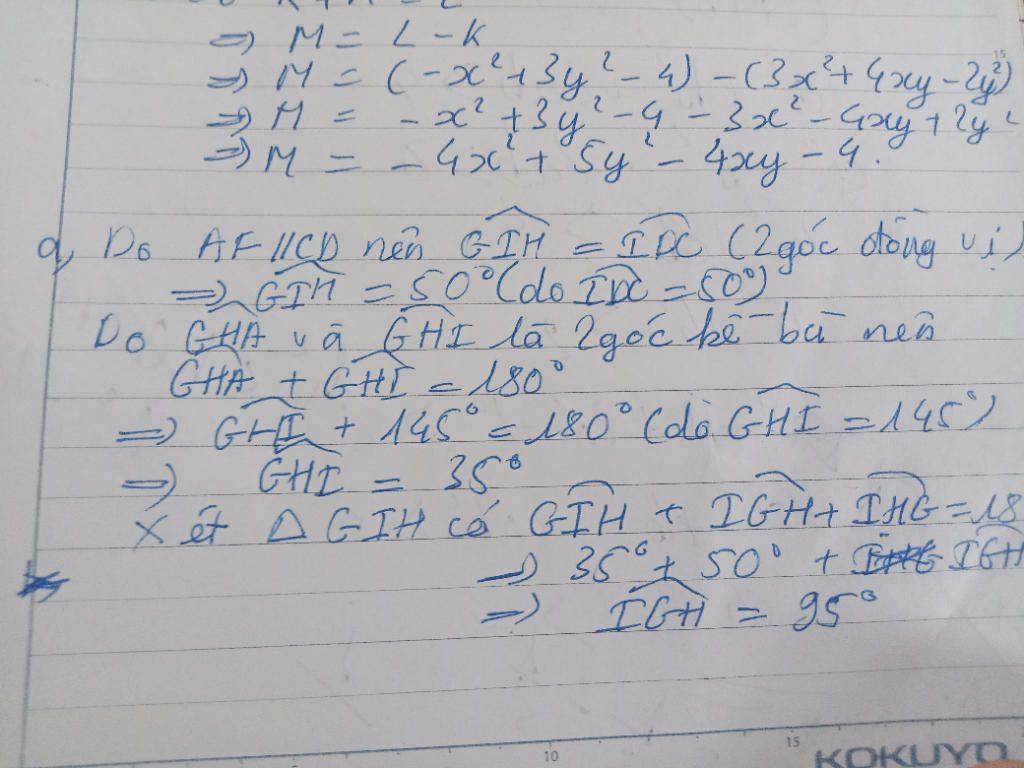 ⇒ M = L - K
⇒ M = (-x² + 3y² - 4) - (3x² + 4xy - 2y²)
⇒ M = -x² + 3y² - 4 - 3x² - 4xy + 2y²
⇒ M = -4x² + 5y² - 4xy - 4.
a, Do AF // CD nên GIH = IDC (2 góc đồng vị)
⇒ GIH = 50° (do IDC = 50°)
Do GHA và GHI là 2 góc kề bù nên
GHA + GHI = 180°
⇒ GHI + 145° = 180° (do GHI = 145°)
⇒ GHI = 35°
Xét Δ GIH có GIH + IGH + IHG = 18
⇒ 35° + 50° + IGH
⇒ IGH = 95°
10 15
KOKUYO